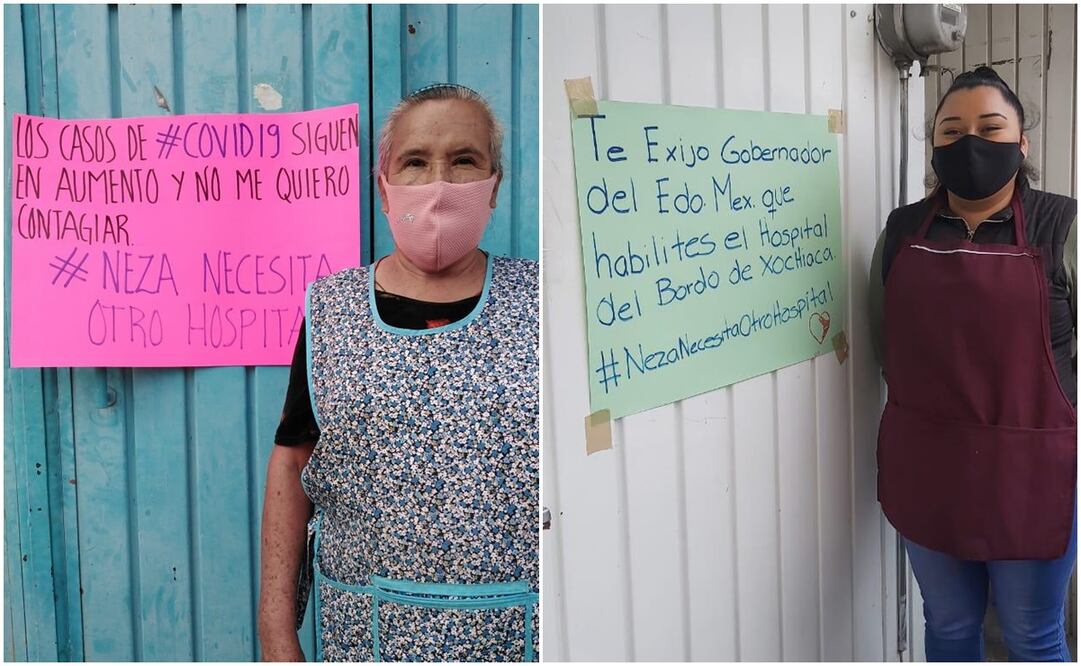 LOS CASOS DE #COVID19 SIGUEN
EN AUMENTO Y NO ME QUIERO
CONTAGIAR.
# NEZA NECESITA
OTRO HOSPITA
Te Exijo Gobernador
del Edo. Mex. que
habilites el Hospital
del Bordo de Xochiaca.
#NezaNecesitaOtroHospital